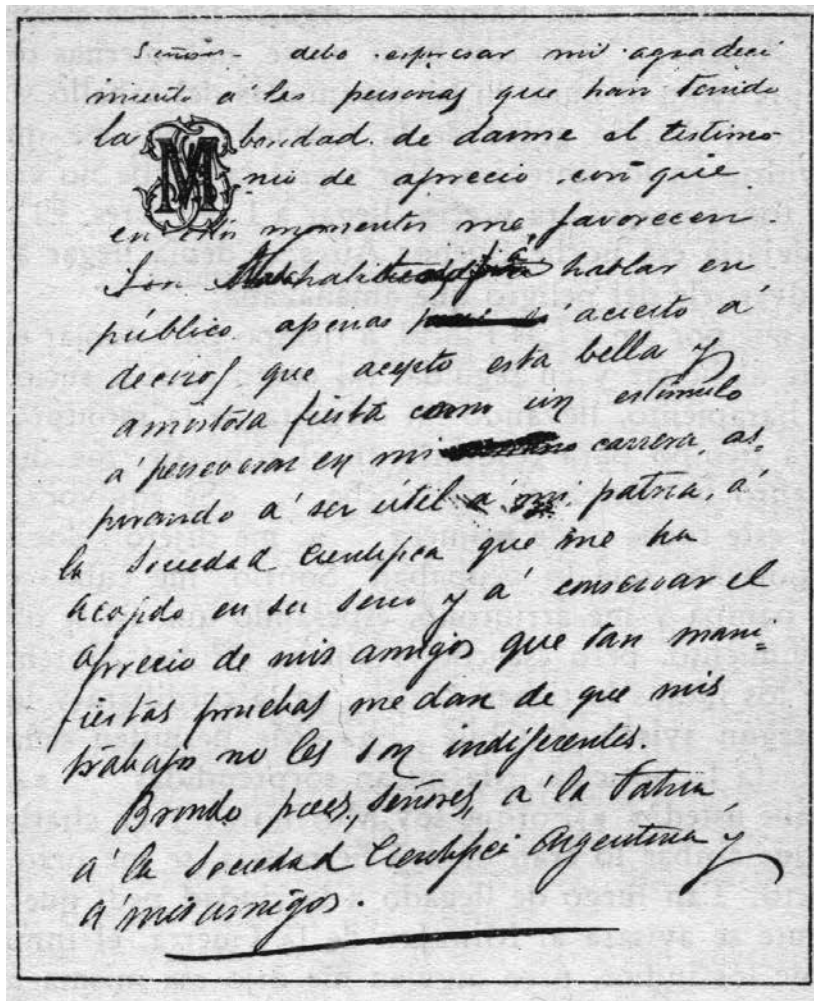 Señores - debo espresar mi agradeci
miento á las personas que han tenido
la bondad de darme el testimo-
nio de aprecio con que
en estos momentos me favorecen.
Sin hablar en
público apenas acierto á
deciros que acepto esta bella y
amistosa fiesta como un estímulo
á perseverar en mi carrera, as-
pirando á ser útil á mi patria, á
la Sociedad Cientifica que me ha
acojido en su seno y á conservar el
aprecio de mis amigos que tan mani-
fiestas pruebas me dan de que mis
trabajos no les son indiferentes.
Brindo pues, señores, á la Patria
á la Sociedad Cientifica Argentina y
á mis amigos.